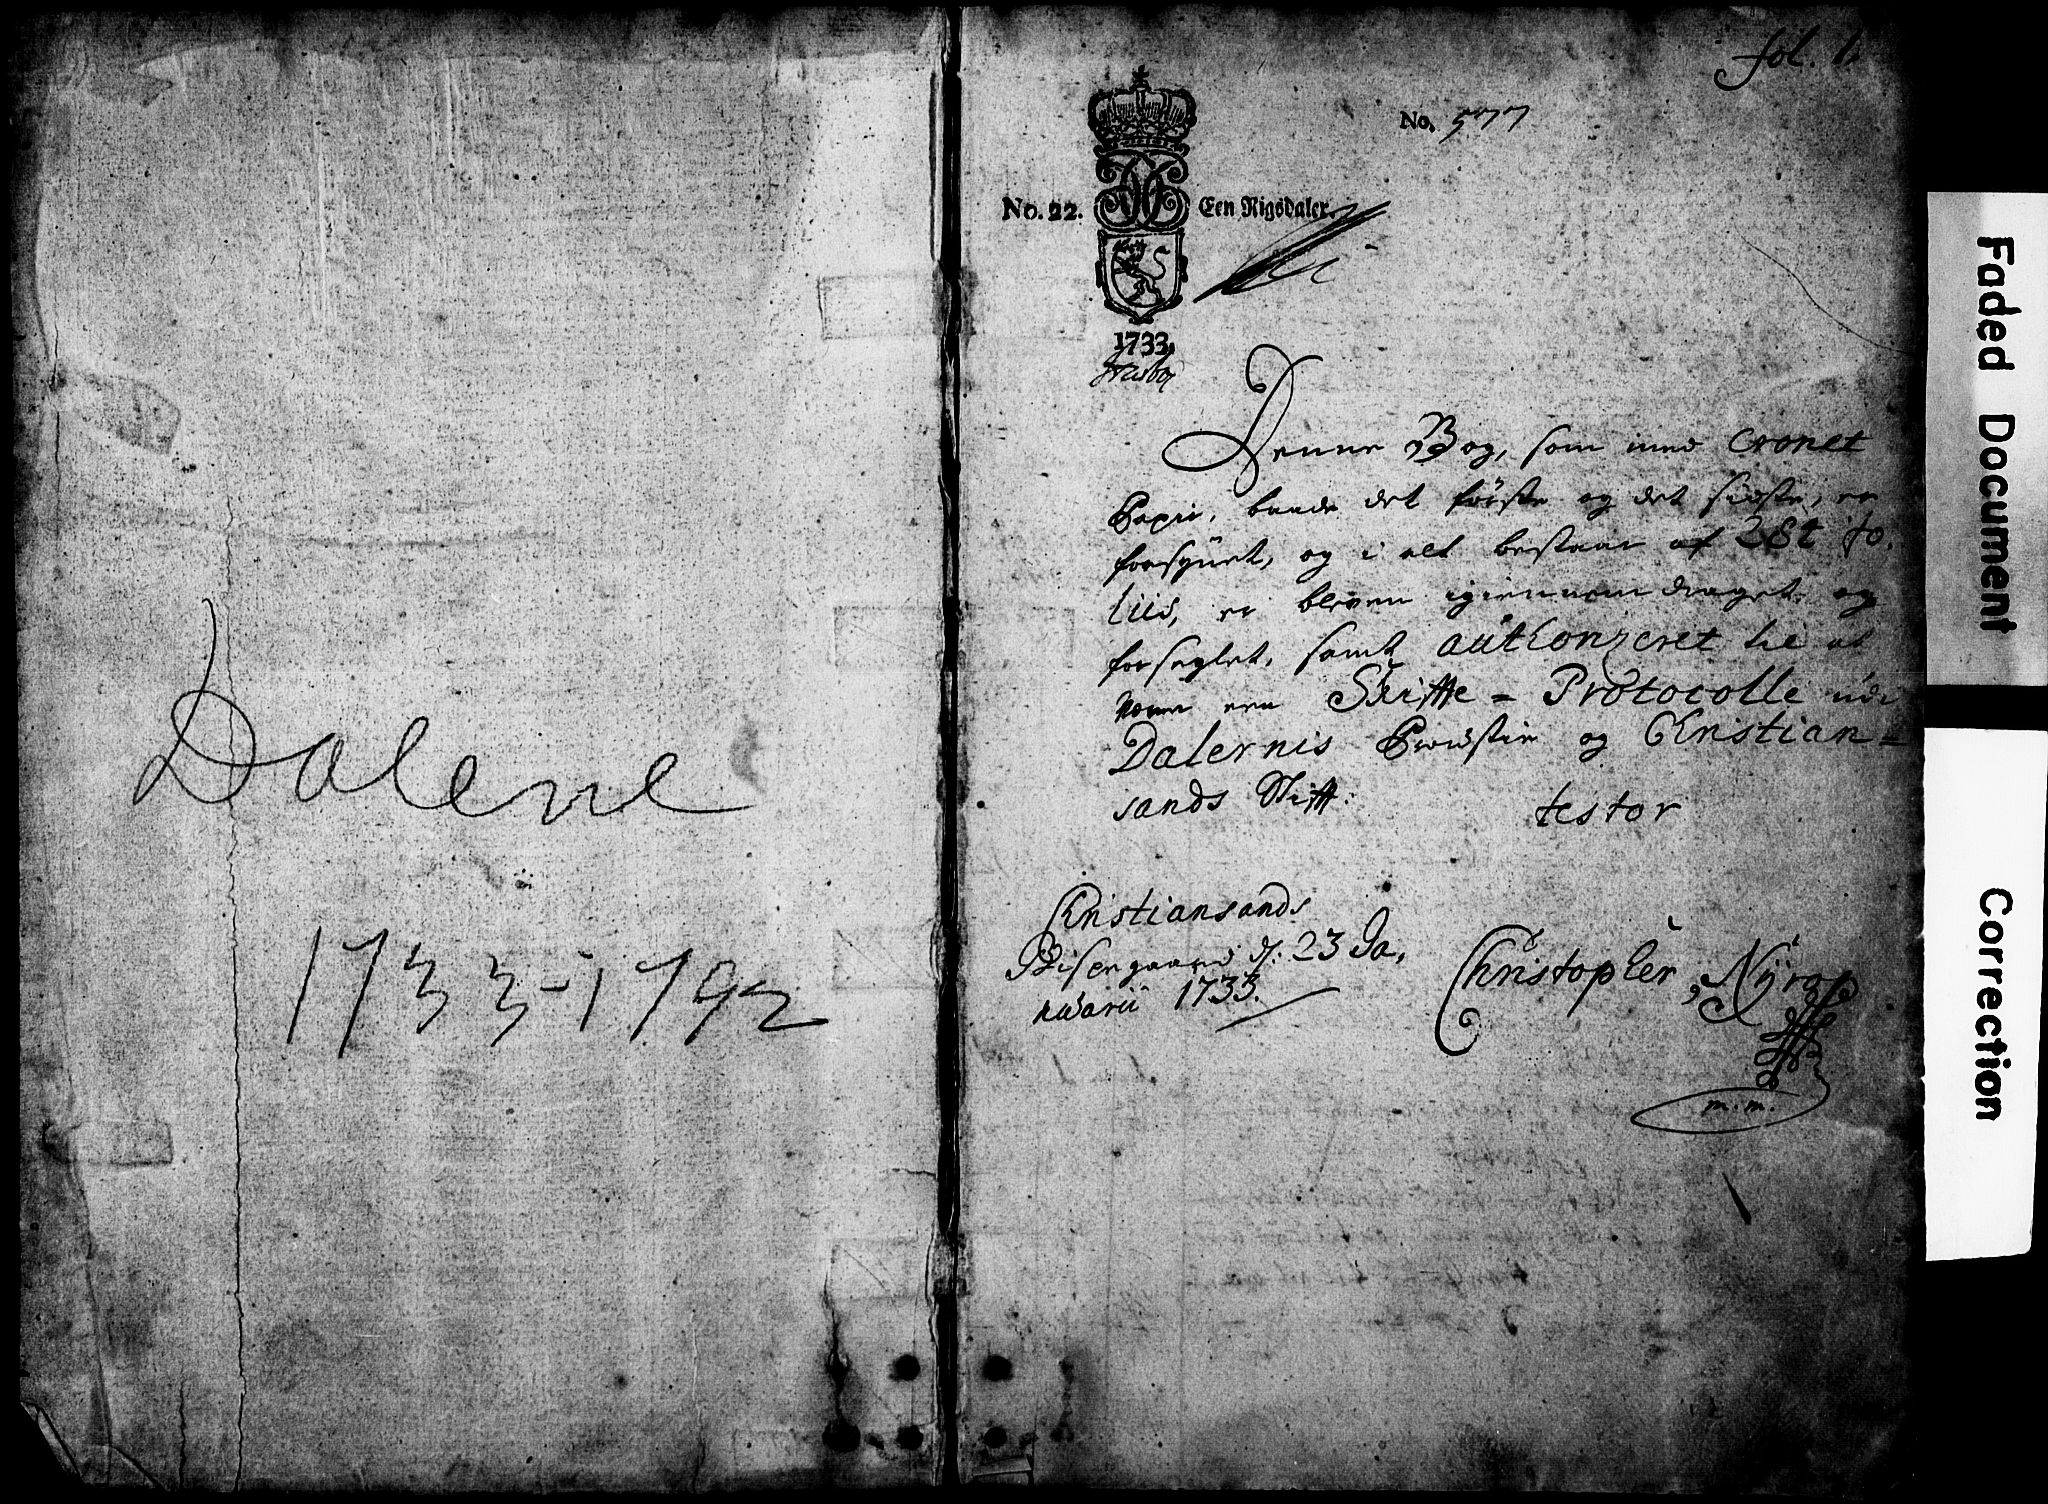 Dalene
1733-1792
fol. 1.
No. 577
No. 22. Een Rigsdaler.
1733.
Denne Bog, som med cronet
Papir, baade det første og det sidste, er
forsÿnet, og i alt bestaar af 284 fo.
liis, er bleven igiennemdraget og
forseglet, samt authoriseret til at
være een Skiffte = Protocolle udi
Dalernis Provstie og Christian =
sands Stifft.
testor
Christiansands
Bispegaard d. 23 Ja,
nuarii 1733.
Christopher Nÿrop
m.m.
Faded Document
Correction